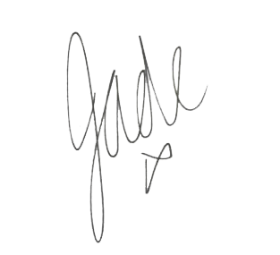 Jade x